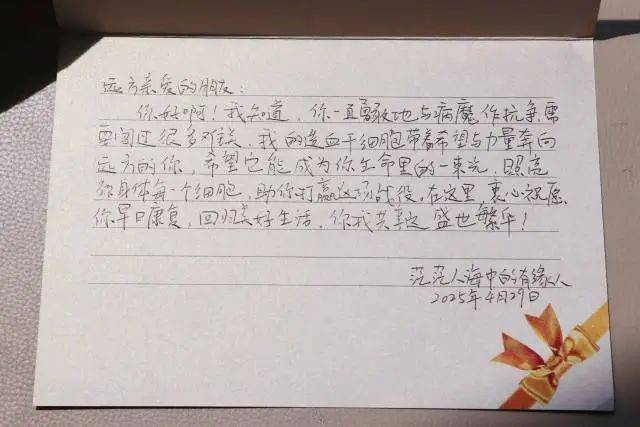 远方亲爱的朋友：
你好啊！我知道，你一直勇敢地与病魔作抗争，需
要闯过很多难关，我的造血干细胞带着希望与力量奔向
远方的你，希望它能成为你生命里的一束光，照亮
你身体每一个细胞，助你打赢这场战役。在这里，衷心祝愿
你早日康复，回归美好生活，你我共享这盛世繁华！
茫茫人海中的有缘人
2025年4月29日